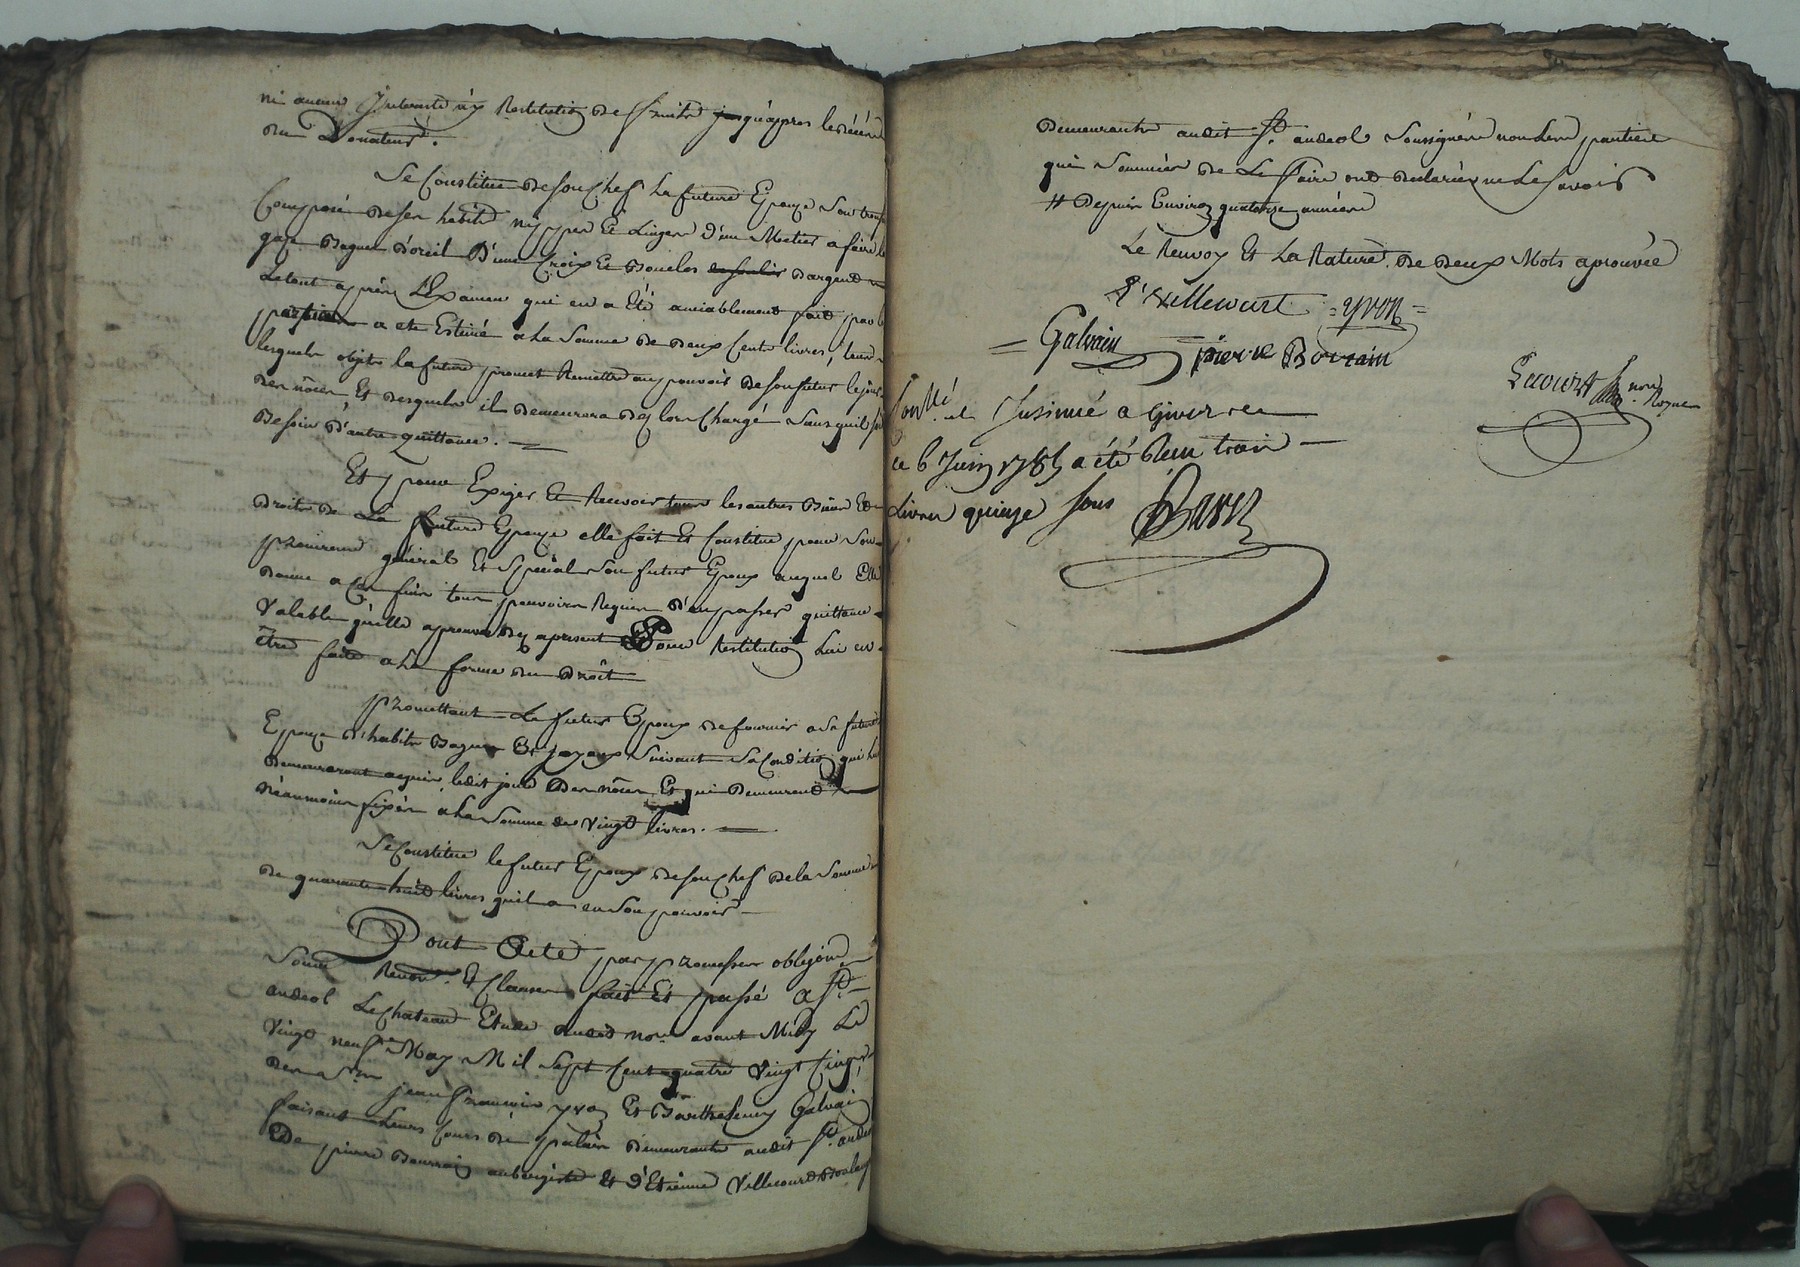 ni aucun Interest ny Restitution de fruits jusqu'apres le décéd
du Donateur.
Se Constitue de son Chef La future Epouze Son trous
Composé de ses habits nippes Et Linges d'un Metier a faire
gaze Bagues d'oreil D'une Croix Et Boucles d'argend
Letout après L'Examen qui en a Eté amiablement fait par
parties a eté Estimé a La Somme de Deux Cents livres,
lesquels objets la future promet Remettre au pouvoir de son futur le jour
des nôces Et desquels il Demeurera Des lors Chargé Sans quil soi
Besoin D'autre quittance.
Et pour Exiger Et Recevoir tous les autres Biens Et
droits de La future Epouze elle fait Et Constitue pour Son
procureur général Et Special Son futur Epoux auquel Elle
Donne a Ces fins tous pouvoirs Requis D'en passer quittance
Valable quelle approuve Des apresent Pour Restitution Lui en
être faite a La forme du Droit
promettant Le futur Epoux de fournir a Sa future
Epouze D'habits Bagues Et joyaux Suivant Sa Condition qui Lui
Demeureront acquis ledit jour Des nôces Et qui Demeurent
Néanmoins fixés a La Somme de Vingt livres.
Se Constitue le futur Epoux de son Chef de la Somme
de quarante huit livres quil a en Son pouvoir
Dont Acte par promesses obligôns
Soum Renon. Et Clauses fait Et passé a St
andeol Le Chateau Etude dudit nore avant Midy Le
Vingt neuf May Mil Sept Cent quatre Vingt Cinq,
des Srs jean francois yvon Et Barthelemy Galvain
faisant Leurs Cours de palais Demeurants audit St andeol
De pierre Bourrain aubergiste Et d'Etienne Villecourt Boulang
Demeurants audit St andeol Soussignés non Les parties
qui Sommées de Le faire ont declarées ne Le Savoir
# Depuis Environ quatorze années
Le Renvoy Et La Rature de Deux Mots aprouvée
E Villecourt = yvon =
= Galvain pierre Bourain
Lacourt nore Royal
Conllé et Insinué a Givors
ce 6 Juin 1785 a été Recu trois
Livres quinze Sous